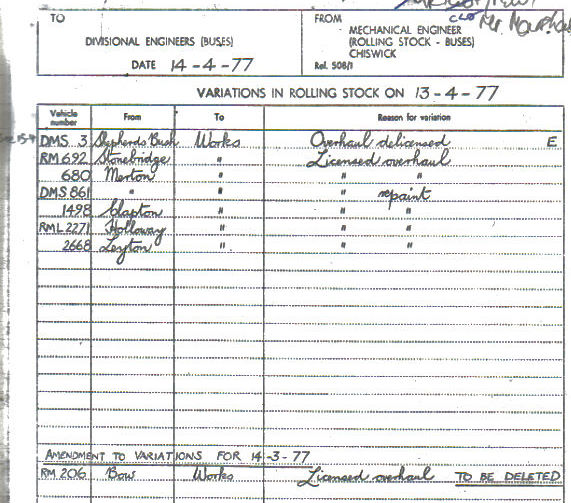 TO
DIVISIONAL ENGINEERS (BUSES)
DATE 14-4-77
FROM
MECHANICAL ENGINEER
(ROLLING STOCK - BUSES)
CHISWICK
Ref. 508/1
VARIATIONS IN ROLLING STOCK ON 13-4-77
Vehicle number From To Reason for variation
DMS 3 Shepherds Bush Works Overhaul delicensed E
RM 692 Stonebridge " Licensed overhaul
680 Merton " " "
DMS 861 " " " repaint
1498 Clapton " " "
RML 2271 Holloway " " "
2668 Leyton " " "
AMENDMENT TO VARIATIONS FOR 14-3-77
RM 206 Bow Works Licensed overhaul TO BE DELETED